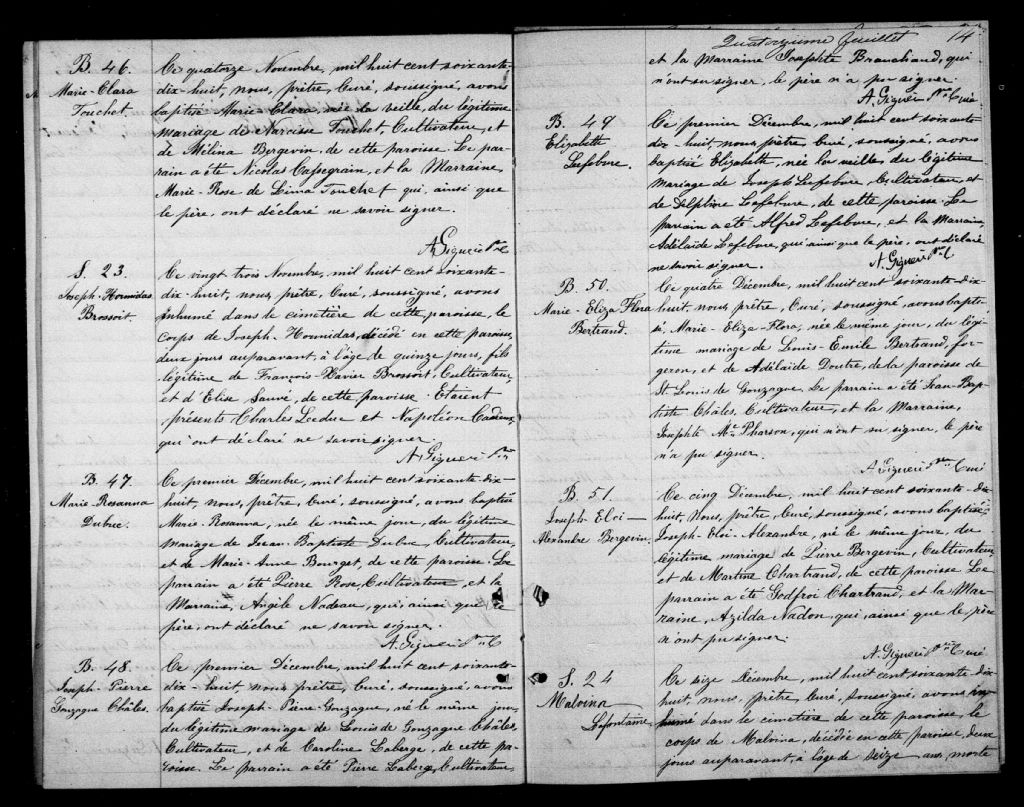 B. 46.
Marie-Clara
Touchet.
Ce quatorze Novembre, mil huit cent soixante-
dix-huit, nous, prêtre, Curé, soussigné, avons
baptisé Marie-Clara, née la veille, du légitime
mariage de Narcisse Touchet, Cultivateur, et
de Mélina Bergevin, de cette paroisse. Le par-
rain a été Nicolas Cassegrain, et la Marraine
Marie-Rose de Lima Touchet qui, ainsi que
le père, ont déclaré ne savoir signer.
S. 23.
Joseph-Hormidas
Brossoit.
Ce vingt trois Novembre, mil huit cent soixante-
dix-huit, nous, prêtre, Curé, soussigné, avons
inhumé dans le cimetière de cette paroisse, le
corps de Joseph-Hormidas, décédé en cette paroisse,
deux jours auparavant, à l'âge de quinze jours, fils
légitime de François-Xavier Brossoit, Cultivateur,
et d'Elise Sauvé, de cette paroisse. Etaient
présents Charles Leduc et Napoléon Cadieux,
qui ont déclaré ne savoir signer.
B. 47.
Marie-Rosanna
Dubuc.
Ce premier Décembre, mil huit cent soixante dix-
huit, nous, prêtre, Curé, soussigné, avons baptisé
Marie-Rosanna, née le même jour, du légitime
mariage de Jean-Baptiste Dubuc, Cultivateur,
et de Marie-Anne Bourget, de cette paroisse. Le
parrain a été Pierre Rose, Cultivateur, et la
Marraine, Angèle Nadeau, qui, ainsi que le
père, ont déclaré ne savoir signer.
B. 48.
Joseph-Pierre
Gonzague Châles.
Ce premier Décembre, mil huit cent soixante-
dix-huit, nous, prêtre, Curé, soussigné, avons
baptisé Joseph-Pierre-Gonzague, né le même jour,
du légitime mariage de Louis de Gonzague Châles,
Cultivateur, et de Caroline Laberge, de cette pa-
roisse. Le parrain a été Pierre Laberge, Cultivateur,
Quatorzième feuillet 14
et la Marraine Josephte Branchaud, qui
n'ont su signer, le père n'a pu signer.
B. 49
Elizabeth
Lefebvre.
Ce premier Décembre, mil huit cent soixante
dix-huit, nous, prêtre, Curé, soussigné, avons
baptisé Elizabeth, née la veille, du légitime
mariage de Joseph Lefebvre, Cultivateur, et
de Delphine Lefebvre, de cette paroisse. Le
parrain a été Alfred Lefebvre, et la Marraine,
Adélaide Lefebvre, qui ainsi que le père, ont déclaré
ne savoir signer.
B. 50.
Marie-Eliza Flora
Bertrand.
Ce quatre Décembre, mil huit cent soixante-dix-
huit, nous, prêtre, Curé, soussigné, avons bapti-
sé, Marie-Eliza-Flora, née le même jour, du légi-
time mariage de Louis-Emile Bertrand, for-
geron, et de Adélaide Doutre, de la paroisse de
St. Louis de Gonzague. Le parrain a été Jean-Bap-
tiste Châles, Cultivateur, et la Marraine,
Josephte Mc Pharson, qui n'ont su signer, le père
n'a pu signer.
B. 51.
Joseph-Eloi-
Alexandre Bergevin.
Ce cinq Décembre, mil huit cent soixante-dix-
huit, Nous, prêtre, Curé, soussigné, avons baptisé
Joseph-Eloi-Alexandre, né le même jour, du
légitime mariage de Pierre Bergevin, Cultivateur
et de Martine Chartrand, de cette paroisse. Le
parrain a été Godfroi Chartrand, et la Mar-
raine, Azilda Nadon, qui, ainsi que le père
n'ont pu signer.
S. 24
Malvina
Lafontaine.
Ce size Décembre, mil huit cent soixante dix
huit, nous, prêtre, Curé, soussigné, avons in-
humé dans le cimetière de cette paroisse, le
corps de Malvina, décédée en cette paroisse, deux
jours auparavant, à l'âge de seize ans, morte